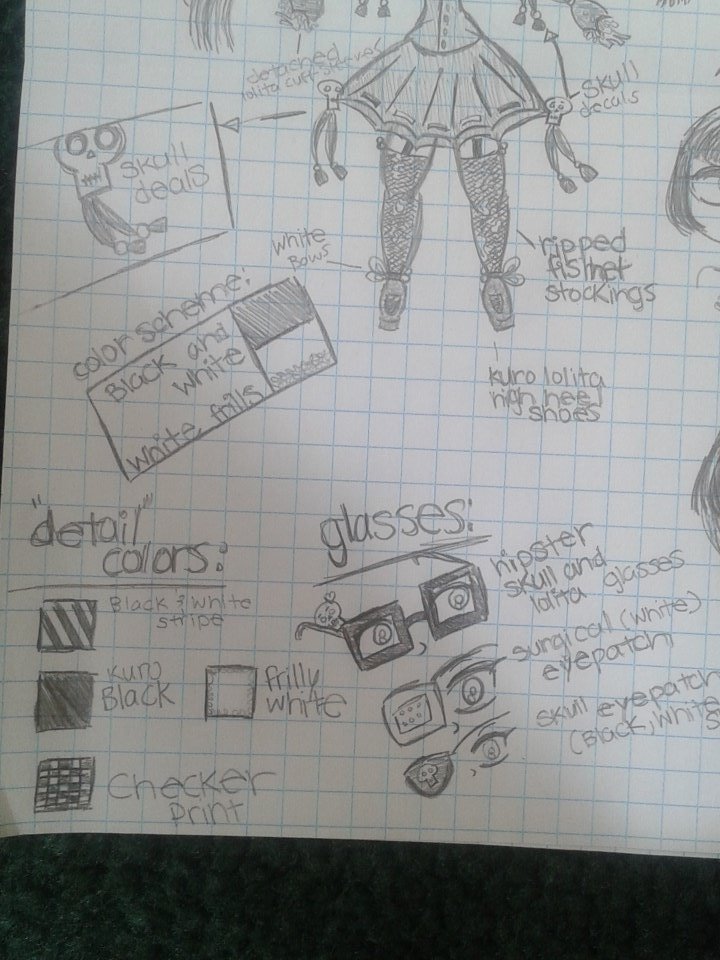 detached
lolita cuff sleeves
skull
decals
skull
deals
white
Bows
ripped
fishnet
stockings
color scheme:
Black and
white
white frills
kuro lolita
high heel
shoes
"detail"
colors:
Black & white
stripe
kuro
Black
frilly
white
Checker
print
glasses:
hipster
skull and
lolita glasses
surgical (white)
eyepatch
skull eyepatch
(Black, white